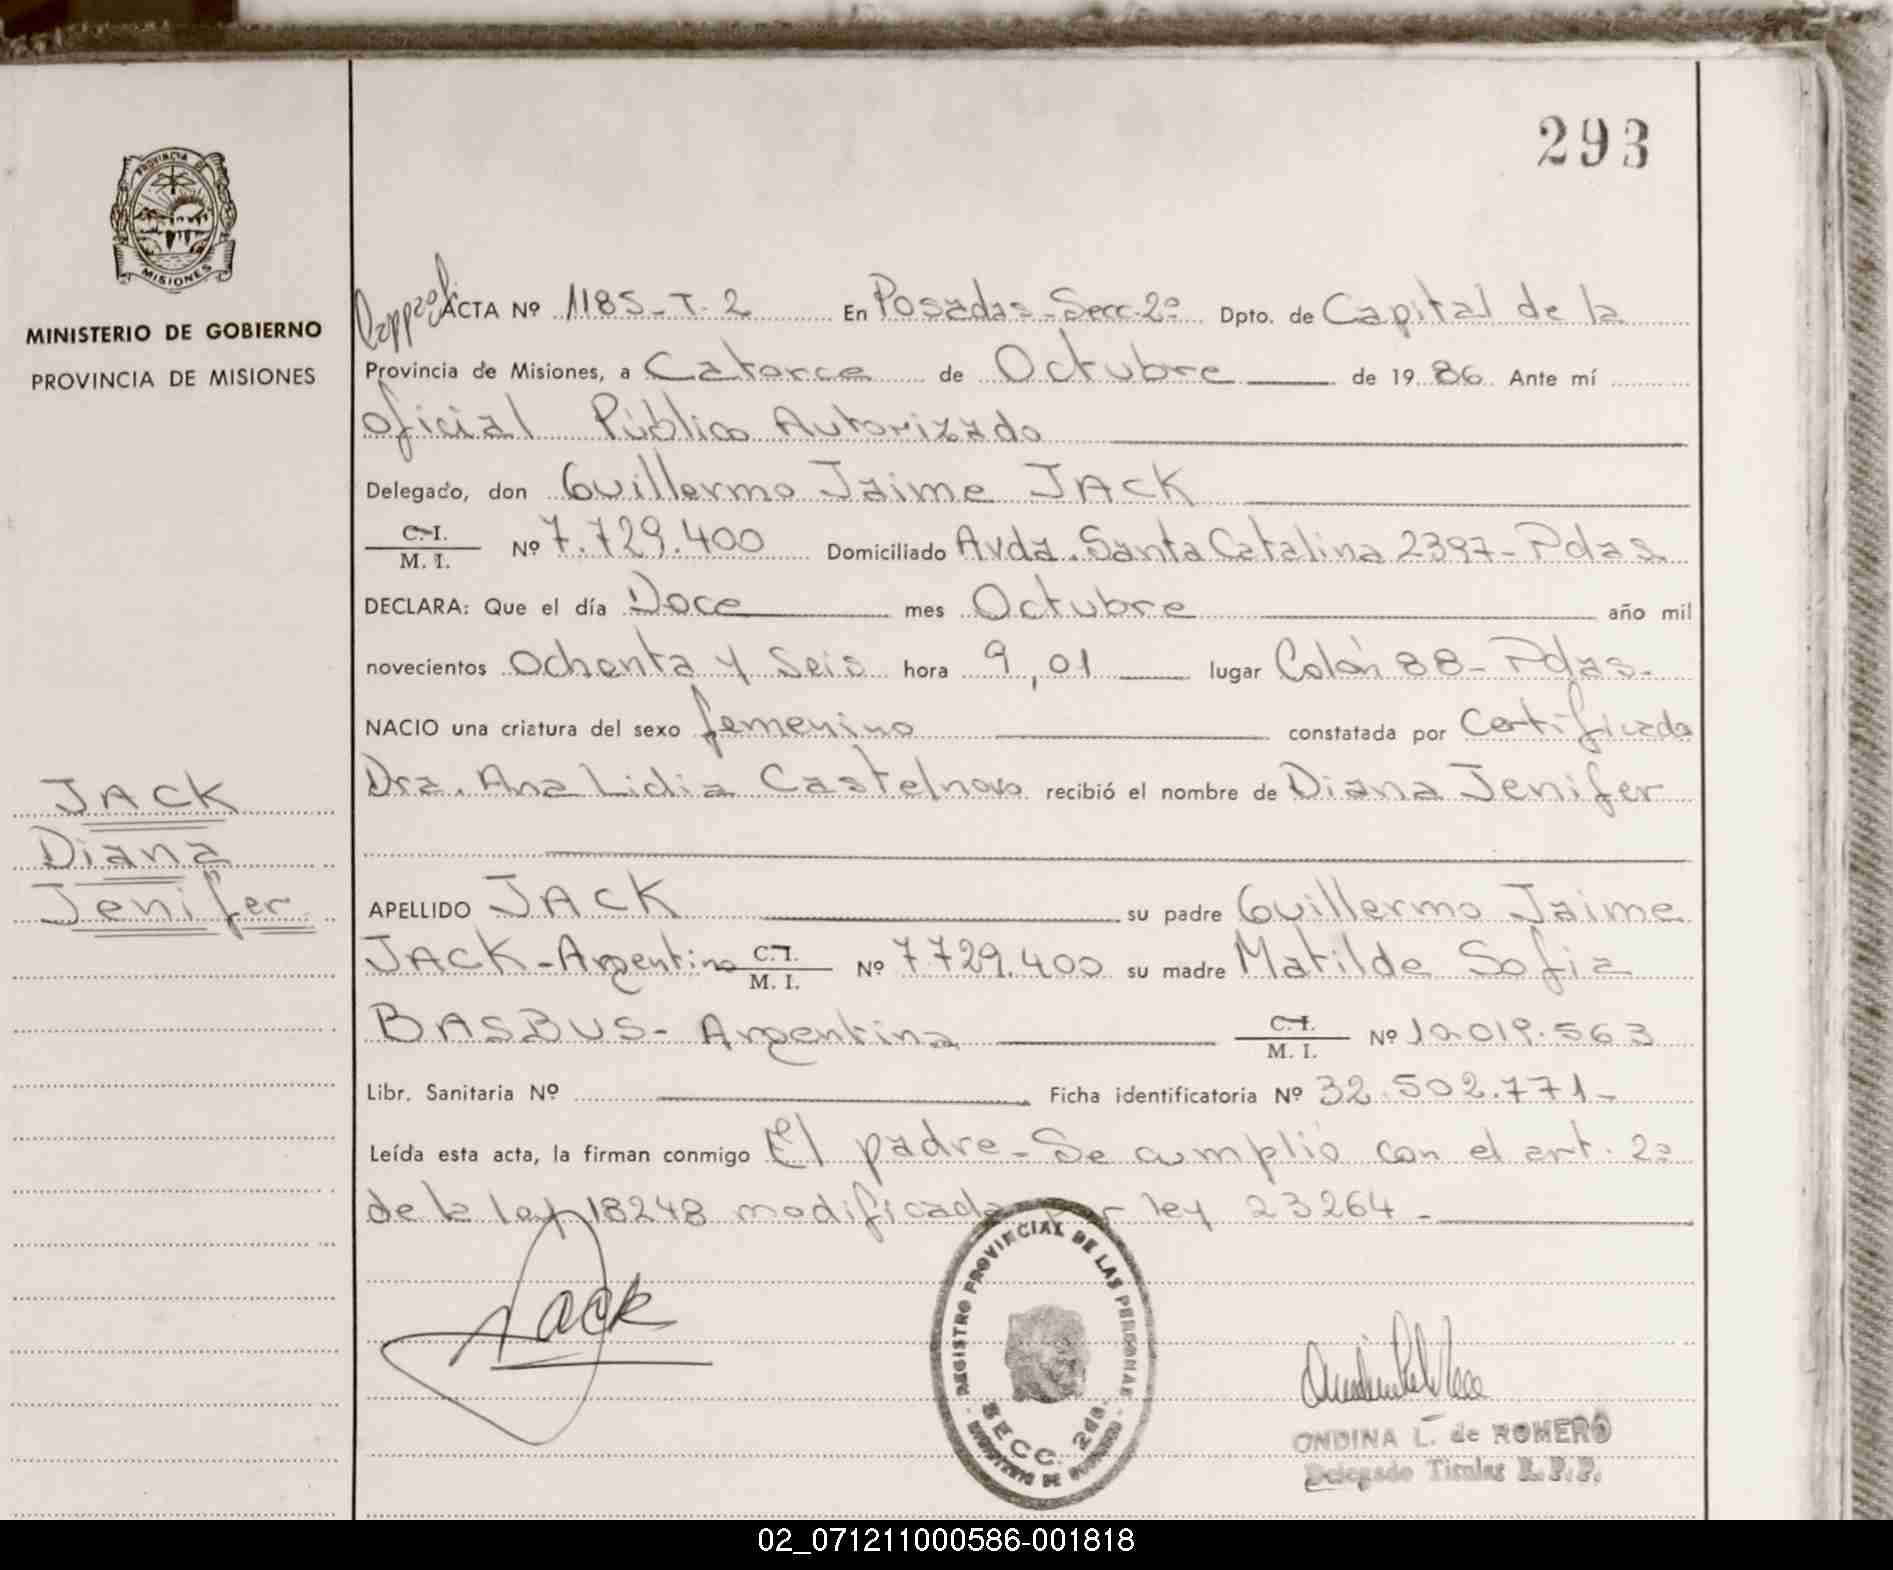 293
PROVINCIA DE
MISIONES
MINISTERIO DE GOBIERNO
PROVINCIA DE MISIONES
JACK
Diana
Jenifer
ACTA Nº 1185-T-2 En Posadas-Secc-2º Dpto. de Capital de la
Provincia de Misiones, a Catorce de Octubre de 1986. Ante mí
oficial Público Autorizado
Delegado, don Guillermo Jaime JACK
C.I. / M. I. Nº 7.729.400 Domiciliado Avda. Santa Catalina 2397-Pdas
DECLARA: Que el día Doce mes Octubre año mil
novecientos Ochenta y Seis hora 9,01 lugar Colón 88-Pdas-
NACIO una criatura del sexo femenino constatada por Certificado
Dra. Ana Lidia Castelnovo recibió el nombre de Diana Jenifer
APELLIDO JACK su padre Guillermo Jaime
JACK-Argentino C.I. / M. I. Nº 7729.400 su madre Matilde Sofia
BASBUS- Argentina C.I. / M. I. Nº 10.019.563
Libr. Sanitaria Nº Ficha identificatoria Nº 32.502.771-
Leída esta acta, la firman conmigo El padre-Se cumplió con el art. 2º
de la ley 18248 modificada ley 23264-
Jack
REGISTRO PROVINCIAL DE LAS PERSONAS
SECC. 2da.
MINISTERIO DE GOBIERNO
ONDINA L. de ROMERO
Delegado Titular R.P.P.
02_071211000586-001818